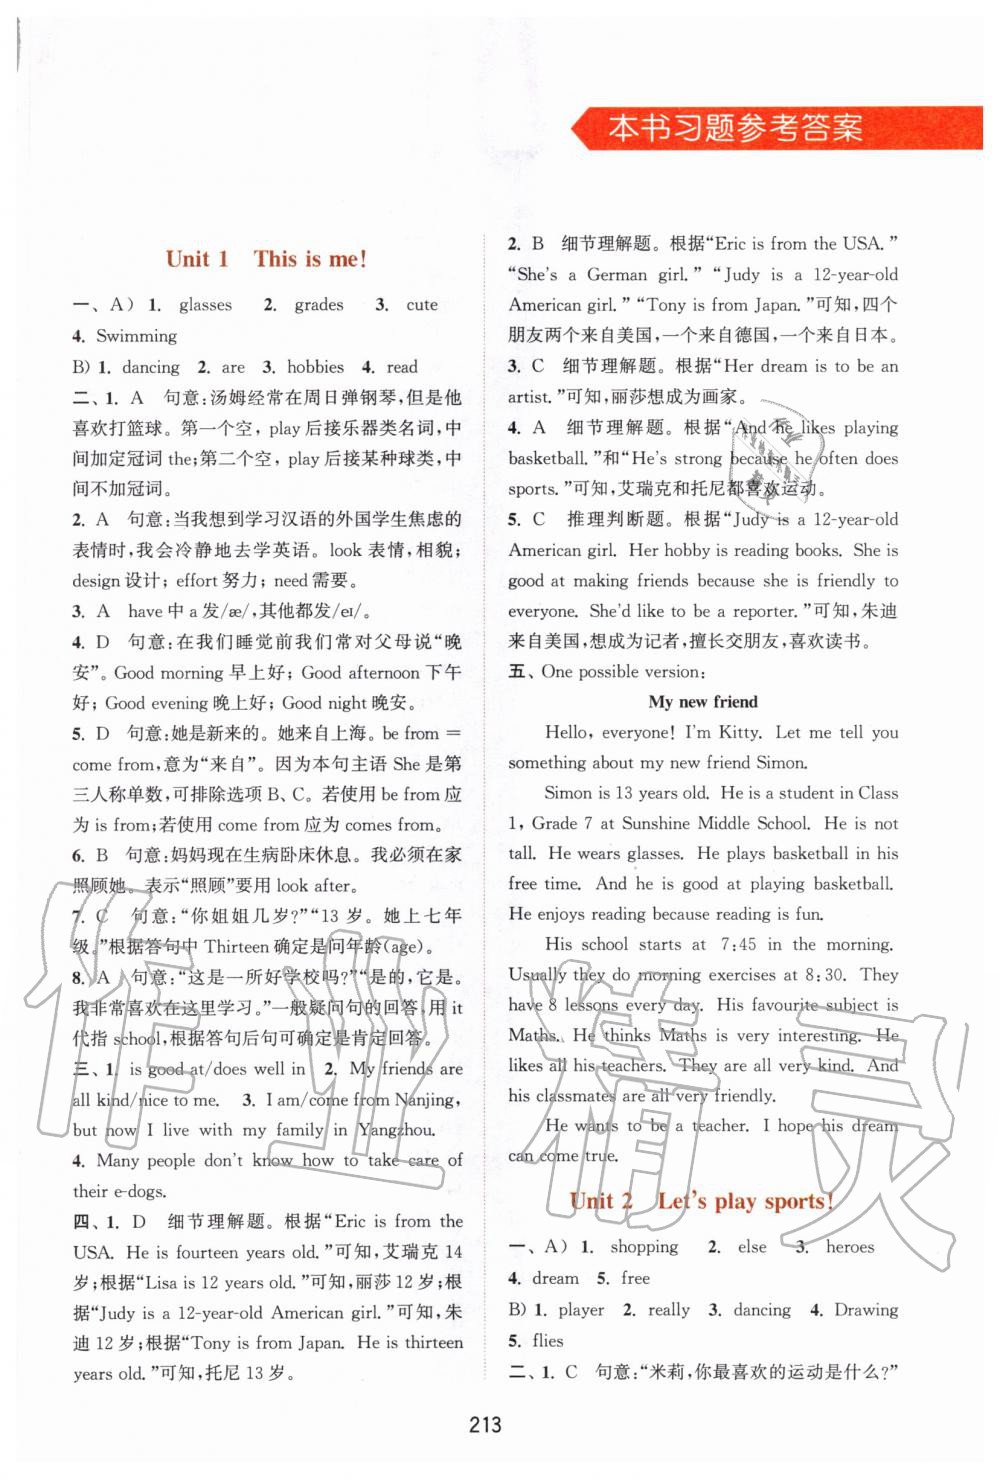 本书习题参考答案
Unit 1 This is me!
一、A) 1. glasses 2. grades 3. cute
4. Swimming
B) 1. dancing 2. are 3. hobbies 4. read
二、1. A 句意:汤姆经常在周日弹钢琴,但是他
喜欢打篮球。第一个空, play 后接乐器类名词,中
间加定冠词 the;第二个空, play 后接某种球类,中
间不加冠词。
2. A 句意:当我想到学习汉语的外国学生焦虑的
表情时,我会冷静地去学英语。look 表情,相貌;
design 设计; effort 努力; need 需要。
3. A have 中 a 发/æ/,其他都发/eɪ/。
4. D 句意:在我们睡觉前我们常对父母说“晚
安”。Good morning 早上好; Good afternoon 下午
好; Good evening 晚上好; Good night 晚安。
5. D 句意:她是新来的。她来自上海。be from =
come from,意为“来自”。因为本句主语 She 是第
三人称单数,可排除选项 B、C。若使用 be from 应
为 is from;若使用 come from 应为 comes from。
6. B 句意:妈妈现在生病卧床休息。我必须在家
照顾她。表示“照顾”要用 look after。
7. C 句意:“你姐姐几岁?”“13 岁。她上七年
级。”根据答句中 Thirteen 确定是问年龄(age)。
8. A 句意:“这是一所好学校吗?”“是的,它是。
我非常喜欢在这里学习。”一般疑问句的回答,用 it
代指 school,根据答句后句可确定肯定回答。
三、1. is good at/does well in 2. My friends are
all kind/nice to me. 3. I am/come from Nanjing,
but now I live with my family in Yangzhou.
4. Many people don't know how to take care of
their e-dogs.
四、1. D 细节理解题。根据“Eric is from the
USA. He is fourteen years old.”可知,艾瑞克 14
岁;根据“Lisa is 12 years old.”可知,丽莎 12 岁;根
据“Judy is a 12-year-old American girl.”可知,朱
迪 12 岁;根据“Tony is from Japan. He is thirteen
years old.”可知,托尼 13 岁。
2. B 细节理解题。根据“Eric is from the USA.”
“She's a German girl.” “Judy is a 12-year-old
American girl.” “Tony is from Japan.”可知,四个
朋友两个来自美国,一个来自德国,一个来自日本。
3. C 细节理解题。根据“Her dream is to be an
artist.”可知,丽莎想成为画家。
4. A 细节理解题。根据“And he likes playing
basketball.”和“He's strong because he often does
sports.”可知,艾瑞克和托尼都喜欢运动。
5. C 推理判断题。根据“Judy is a 12-year-old
American girl. Her hobby is reading books. She is
good at making friends because she is friendly to
everyone. She'd like to be a reporter.”可知,朱迪
来自美国,想成为记者,擅长交朋友,喜欢读书。
五、One possible version:
My new friend
Hello, everyone! I'm Kitty. Let me tell you
something about my new friend Simon.
Simon is 13 years old. He is a student in Class
1, Grade 7 at Sunshine Middle School. He is not
tall. He wears glasses. He plays basketball in his
free time. And he is good at playing basketball.
He enjoys reading because reading is fun.
His school starts at 7:45 in the morning.
Usually they do morning exercises at 8:30. They
have 8 lessons every day. His favourite subject is
Maths. He thinks Maths is very interesting. He
likes all his teachers. They are all very kind. And
his classmates are all very friendly.
He wants to be a teacher. I hope his dream
can come true.
Unit 2 Let's play sports!
一、A) 1. shopping 2. else 3. heroes
4. dream 5. free
B) 1. player 2. really 3. dancing 4. Drawing
5. flies
二、1. C 句意:“米莉,你最喜欢的运动是什么?”
213
作业精灵
作业精灵